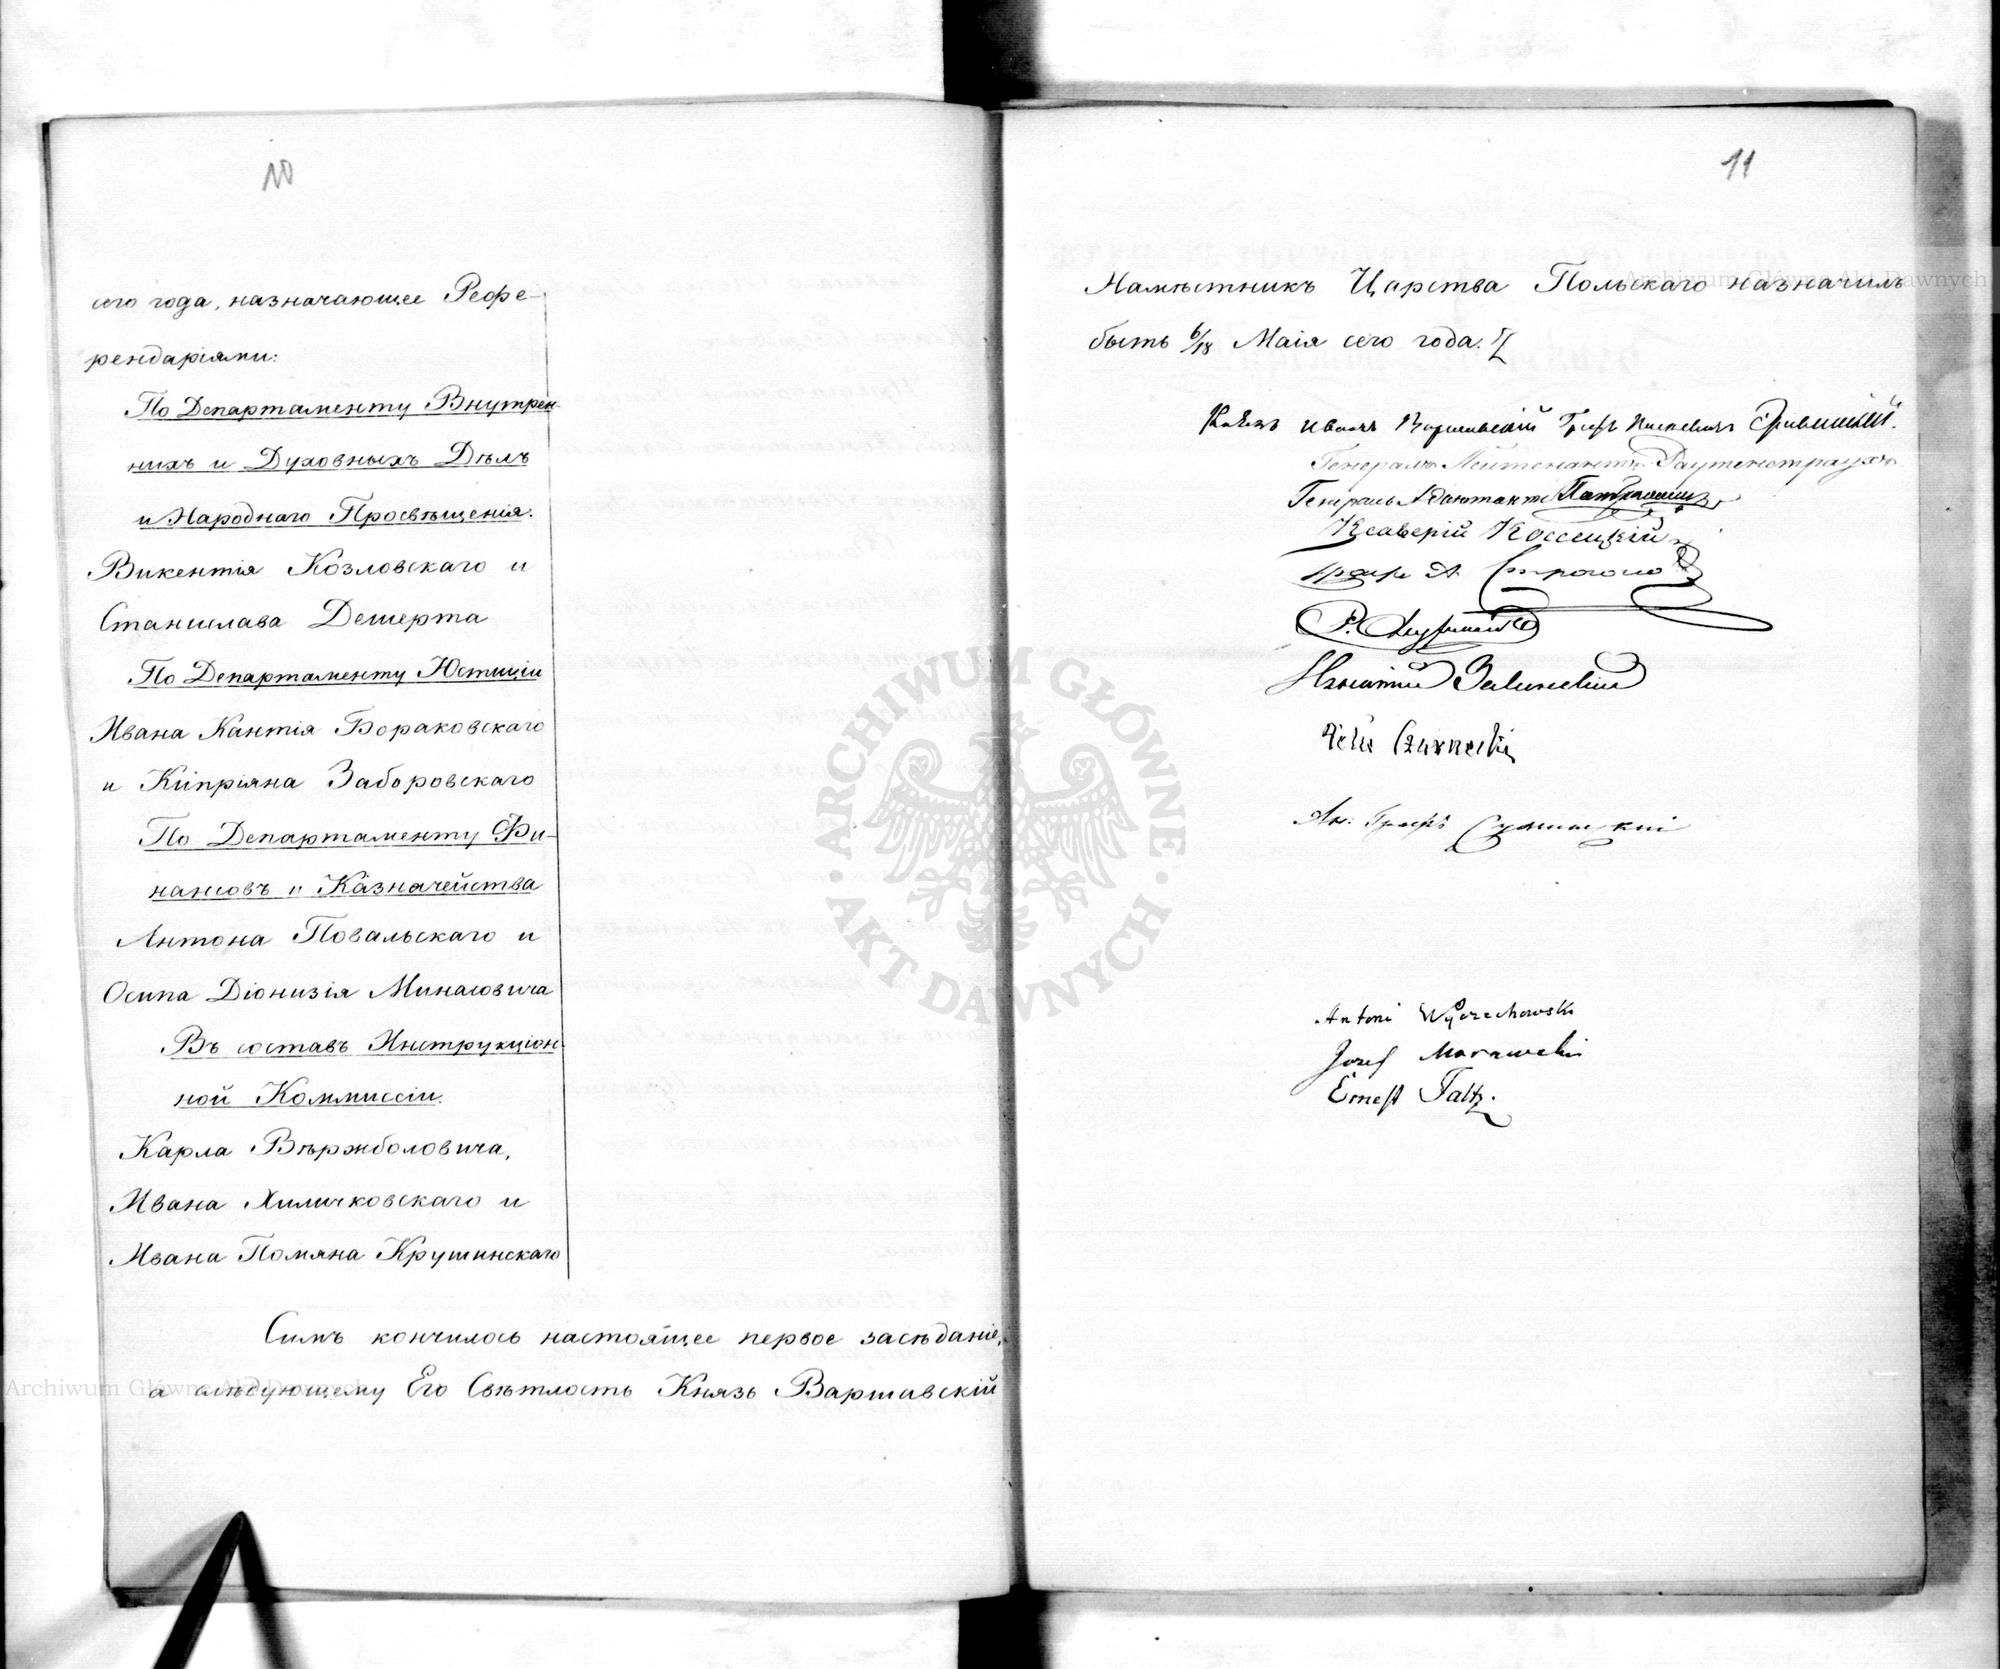 10
сего года, назначающее Рефе-
рендаріями:
По Департаменту Внутрен-
нихъ и Духовныхъ Дѣлъ
и Народнаго Просвѣщенія.
Викентія Козловскаго и
Станислава Дешерта
По Департаменту Юстиціи
Ивана Кантія Бораковскаго
и Кипріяна Заборовскаго
По Департаменту Фи-
нансовъ и Казначейства
Антона Повальскаго и
Осипа Діонизія Минасовича
Въ составъ Инструкціон-
ной Коммиссіи.
Карла Вѣржболовича,
Ивана Хиличковскаго и
Ивана Помяна Крушинскаго
Симъ кончилось настоящее первое засѣданіе,
а слѣдующему Его Свѣтлость Князь Варшавскій
11
Намѣстникъ Царства Польскаго назначилъ
быть 6/18 Маія сего года.
Князь Иванъ Варшавскій Графъ Паскевичъ Эриванскій.
Генералъ Лейтенантъ Раутенштраухъ
Генералъ Адъютантъ
Ксаверій Коссецкій
Графъ А. Строгоно
Игнатій
Czarnecki
Ал. Графъ
Antoni Wyczechowski
Jozef Morawski
Ernest Faltz.
ARCHIWUM GŁÓWNE
AKT DAWNYCH
Archiwum Główne Akt Dawnych
Archiwum Główne Akt Dawnych